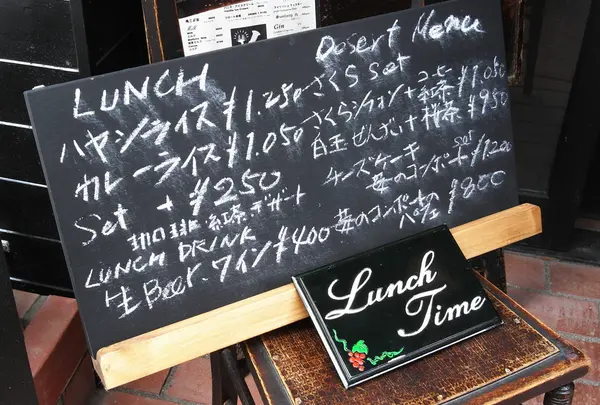 LUNCH
ハヤシライス ¥1.250
カレーライス ¥1.050
Set + ¥250
珈琲・紅茶・デザート
LUNCH DRINK
生Beer・ワイン ¥400
Desert Menu
さくらSet
さくらシフォン+コーヒー 紅茶 ¥1.050
白玉ぜんざい+ ¥950
チーズケーキ
苺のコンポート set ¥1.200
苺のコンポートの
パフェ ¥800
Lunch
Time
Gin